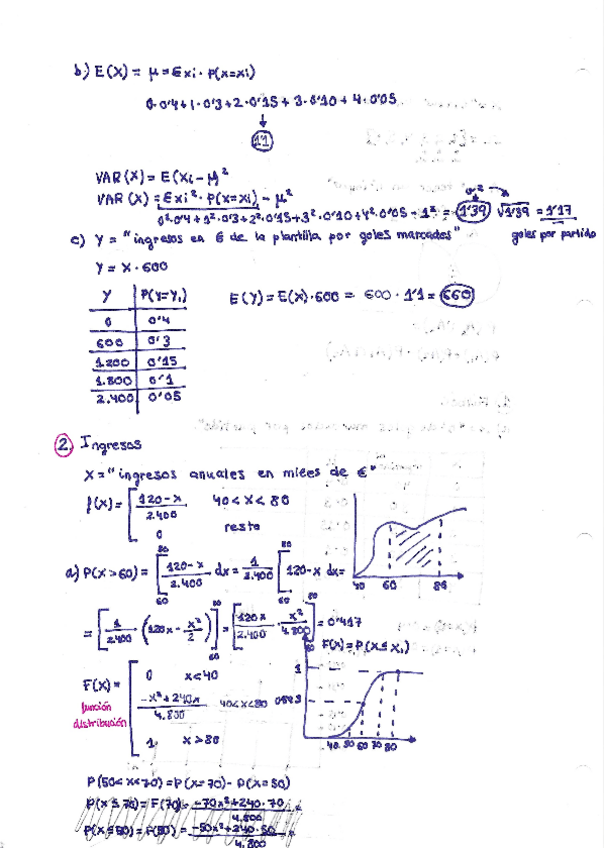 b) E(X) = μ = Σxi · P(x=xi)
0·0'4+1·0'3+2·0'15+3·0'10+4·0'05
1'1
VAR(X) = E(Xi-μ)²
VAR(X) = Σxi²·P(x=xi) - μ²
0²·0'4+1²·0'3+2²·0'15+3²·0'10+4²·0'05 - 1² = 1'39 √1'39 = 1'17
σ²
goles por partido
c) Y = "ingresos en € de la plantilla por goles marcados"
Y = X·600
Y P(Y=Yi)
0 0'4
600 0'3
1.200 0'15
1.800 0'1
2.400 0'05
E(Y) = E(X)·600 = 600·1'1 = 660
2. Ingresos
X = "ingresos anuales en miles de €"
f(x) = [ 120-x / 2.400 40<x<80
0 resto
40 60 80
a) P(X>60) = ∫₆₀⁸⁰ 120-x / 2.400 dx = 1 / 2.400 ∫₆₀⁸⁰ 120-x dx =
= [ 1 / 2.400 (120x - x² / 2) ]₆₀⁸⁰ = [ 120x / 2.400 - x² / 4.800 ]₆₀⁸⁰ = 0'417
F(x) = P(X≤xi)
F(X) = [ 0 x<40
-x²+240x / 4.800 40<x<80
1 x>80
función
distribución
1
40 50 60 70 80
P(50<x<70) = P(x=70) - P(x=50)
P(x≤70) = F(70) = -70x²+240·70 / 4.800 =
P(x≤50) = F(50) = -50x²+240·50 / 4.800 =